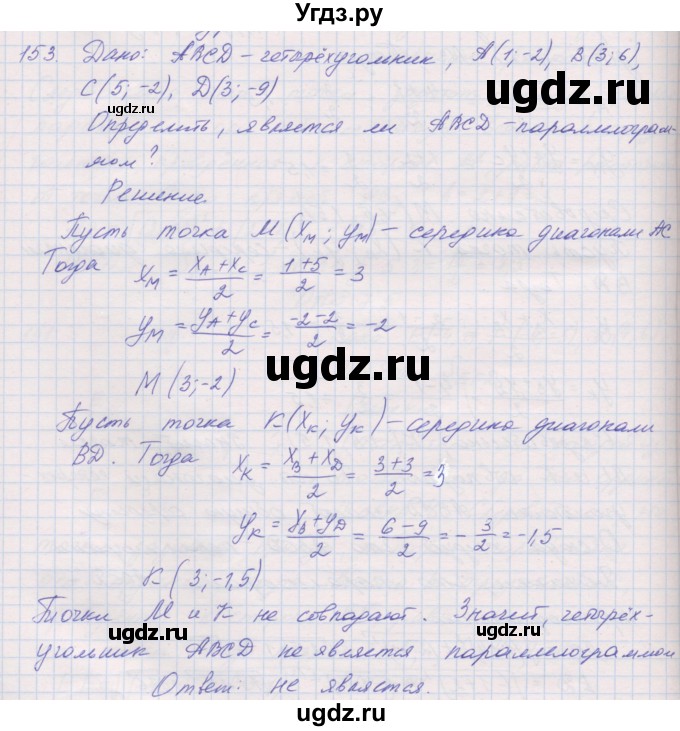 Угдз.ру
153 Дано: ABCD - четырёхугольник, A(1;-2), B(3;6),
C(5;-2), D(3;-9)
ugdz.ru
ugdz.ru
Определить, является ли ABCD - параллелограм-
мом?
Решение.
Пусть точка M(xM; yM) - середина диагонали AC
Тогда xM = (xA + xC)/2 = (1+5)/2 = 3
ugdz.ru
yM = (yA + yC)/2 = (-2-2)/2 = -2
ugdz.ru
M(3;-2)
Пусть точка K(xK; yK) - середина диагонали
ugdz.ru
BD. Тогда xK = (xB + xD)/2 = (3+3)/2 = 3
yK = (yB + yD)/2 = (6-9)/2 = -3/2 = -1,5
ugdz.ru
K(3;-1,5)
Точки M и K не совпадают. Значит, четырёх-
ugdz.ru
ugdz.ru
угольник ABCD не является параллелограммом
Ответ: не является.
ugdz.ru